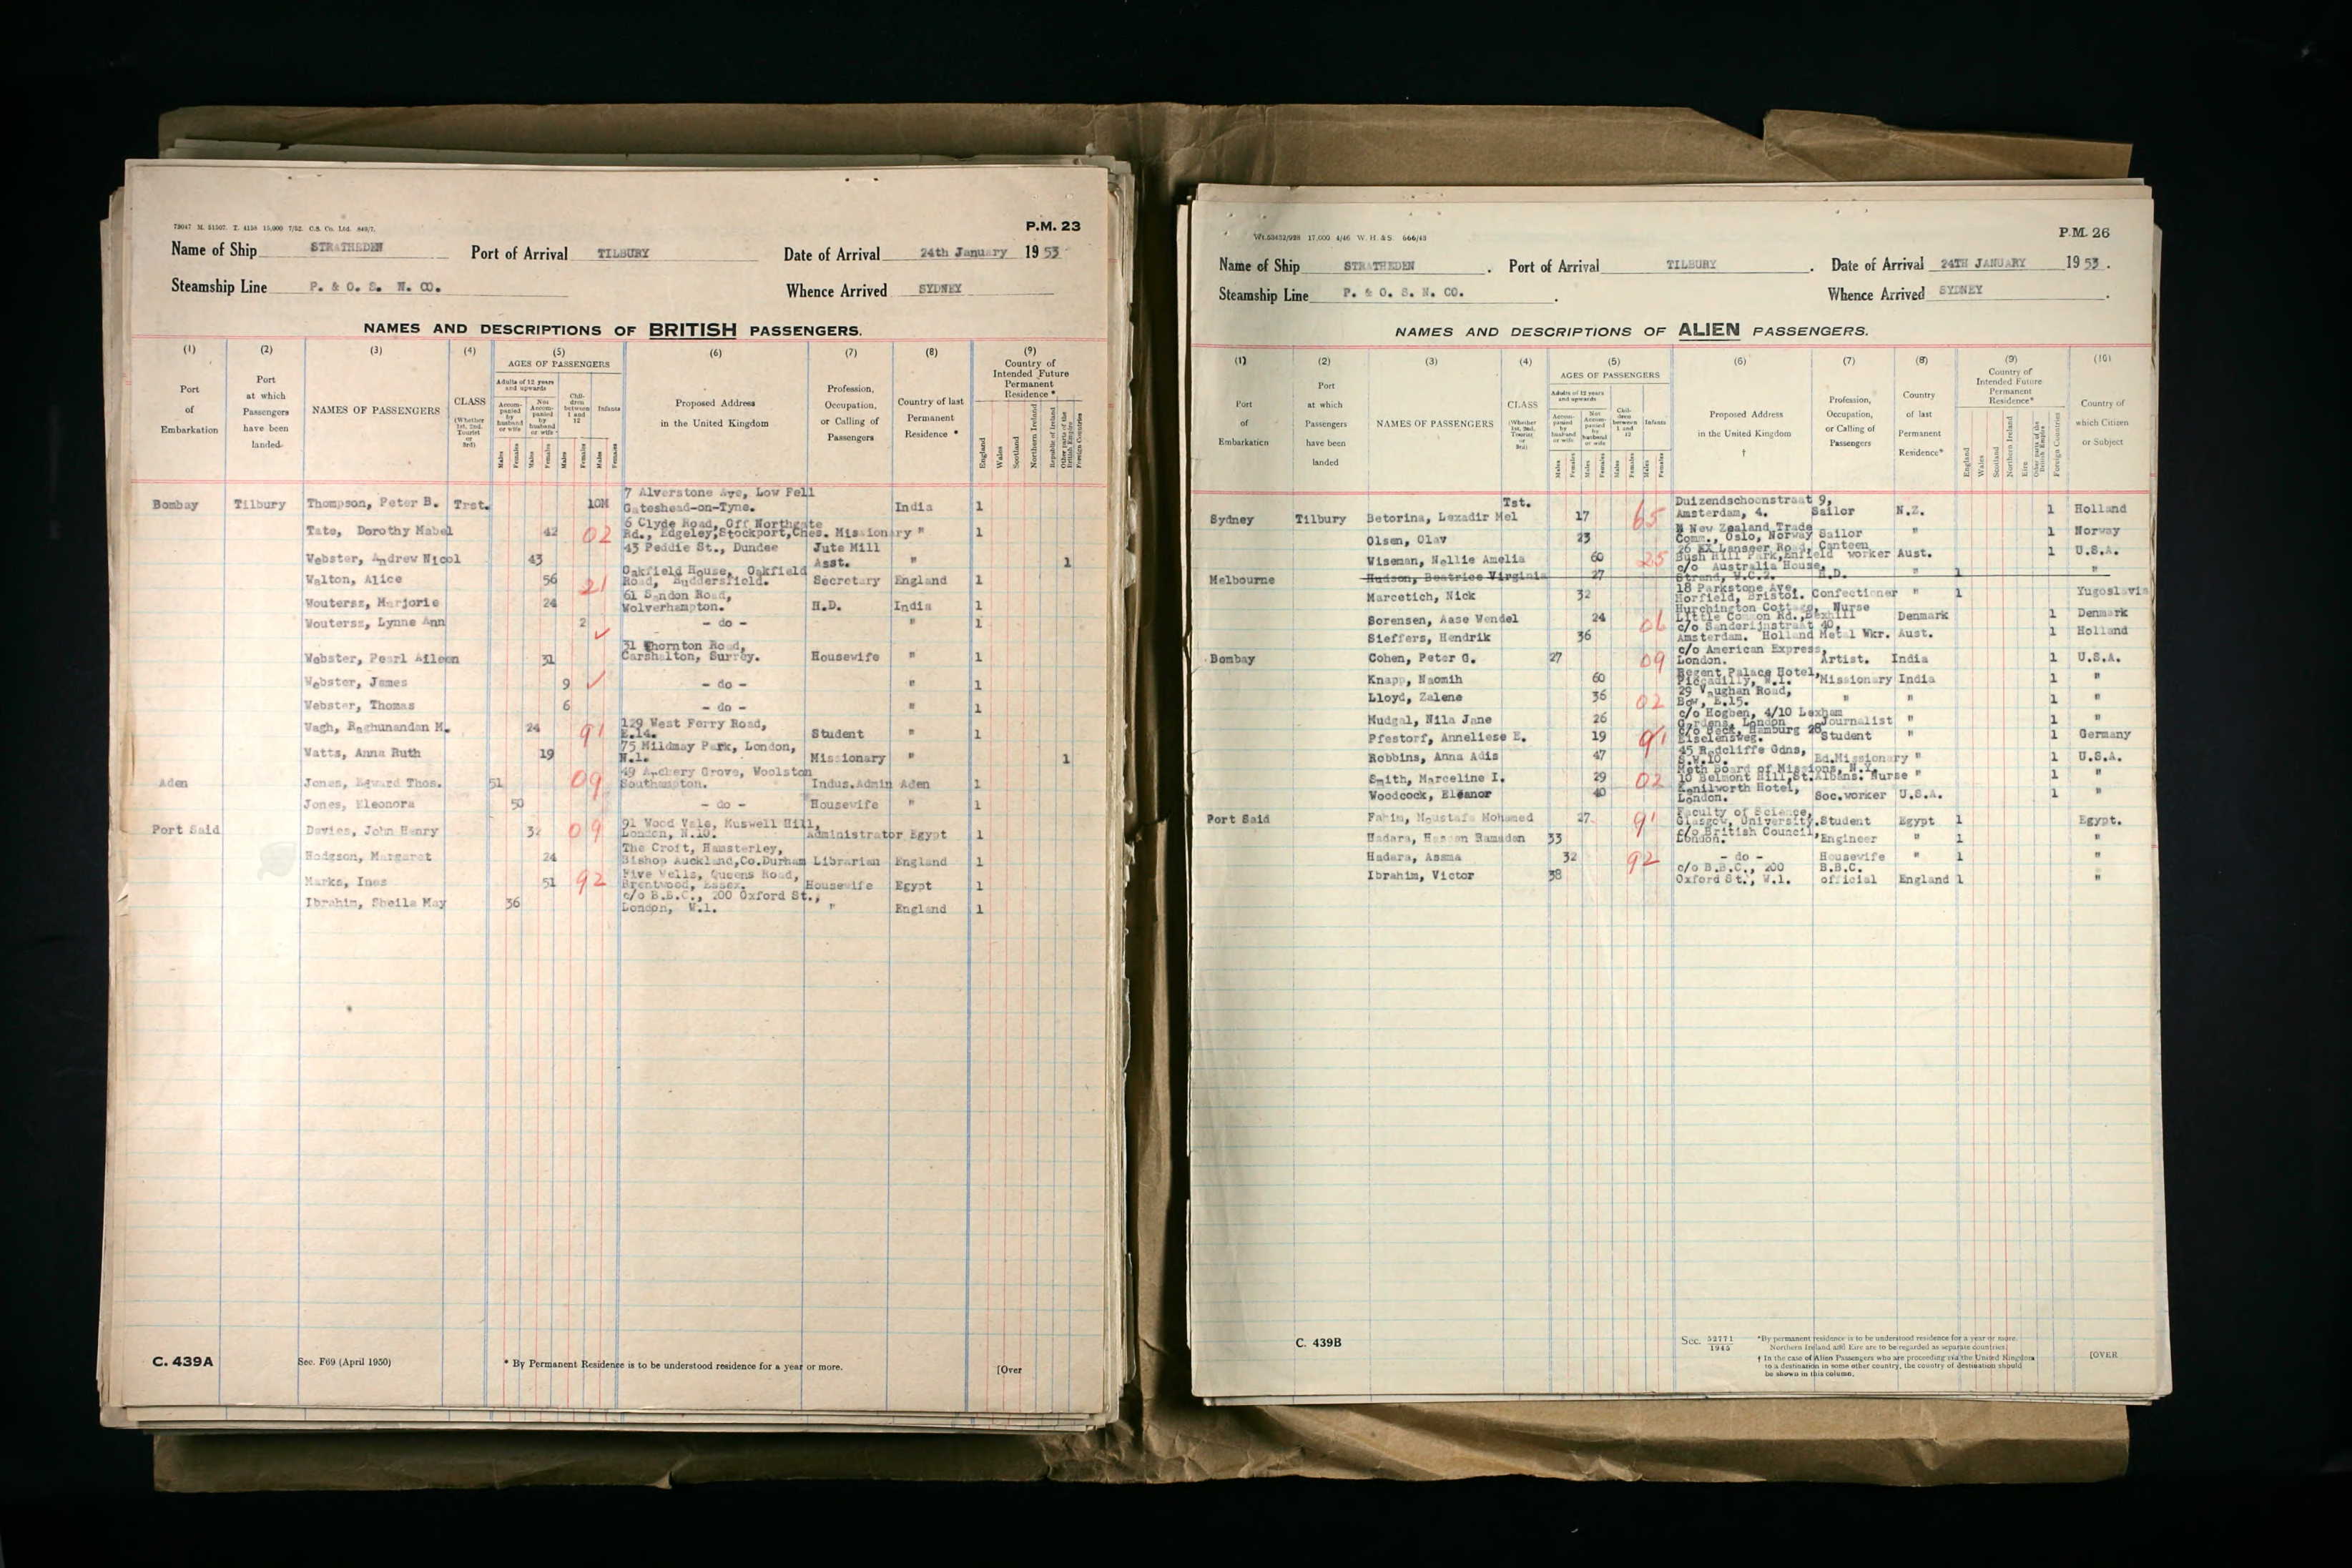 73047 M. 51507. T. 4158 15,000 7/52. C.S. Co. Ltd. 849/7.
P.M. 23
Name of Ship STRATHEDEN Port of Arrival TILBURY Date of Arrival 24th January 1953
Steamship Line P. & O. S. N. CO. Whence Arrived SYDNEY
NAMES AND DESCRIPTIONS OF BRITISH PASSENGERS.
(1) (2) (3) (4) (5) (6) (7) (8) (9)
Port of Embarkation
Port at which Passengers have been landed
NAMES OF PASSENGERS
CLASS (Whether 1st, 2nd, Tourist or 3rd)
AGES OF PASSENGERS
Adults of 12 years and upwards
Accompanied by husband or wife
Not Accompanied by husband or wife
Children between 1 and 12
Infants
Males Females Males Females Males Females Males Females
Proposed Address in the United Kingdom
Profession, Occupation, or Calling of Passengers
Country of last Permanent Residence *
Country of Intended Future Permanent Residence *
England Wales Scotland Northern Ireland Republic of Ireland Other parts of the British Empire Foreign Countries
Bombay Tilbury Thompson, Peter B. Trst. 10M 7 Alverstone Ave, Low Fell
Gateshead-on-Tyne. India 1
Tate, Dorothy Mabel 42 02 6 Clyde Road, Off Northgate
Rd., Edgeley,Stockport,Ches. Missionary " 1
Webster, Andrew Nicol 43 43 Peddie St., Dundee Jute Mill
Asst. " 1
Walton, Alice 56 21 Oakfield House, Oakfield
Road, Huddersfield. Secretary England 1
Wouterss, Marjorie 24 61 Sandon Road,
Wolverhampton. H.D. India 1
Wouterss, Lynne Ann 2 - do - " 1
Webster, Pearl Aileen 31 31 Thornton Road,
Carshalton, Surrey. Housewife " 1
Webster, James 9 - do - " 1
Webster, Thomas 6 - do - " 1
Wagh, Raghunandan M. 24 91 129 West Ferry Road,
E.14. Student " 1
Watts, Anna Ruth 19 75 Mildmay Park, London,
N.1. Missionary " 1
Aden Jones, Edward Thos. 51 09 49 Archery Grove, Woolston
Southampton. Indus.Admin Aden 1
Jones, Eleonora 50 - do - Housewife " 1
Port Said Davies, John Henry 32 09 91 Wood Vale, Muswell Hill,
London, N.10. Administrator Egypt 1
Hodgson, Margaret 24 The Croft, Hamsterley,
Bishop Auckland,Co.Durham Librarian England 1
Marks, Ines 51 92 Five Wells, Queens Road,
Brentwood, Essex. Housewife Egypt 1
Ibrahim, Sheila May 36 c/o B.B.C., 200 Oxford St.,
London, W.1. " England 1
C. 439A Sec. F69 (April 1950) * By Permanent Residence is to be understood residence for a year or more. [Over
Wt.53452/928 17,000 4/46 W. H. & S. 666/43
P.M. 26
Name of Ship STRATHEDEN. Port of Arrival TILBURY. Date of Arrival 24TH JANUARY 1953.
Steamship Line P. & O. S. N. CO. Whence Arrived SYDNEY.
NAMES AND DESCRIPTIONS OF ALIEN PASSENGERS.
(1) (2) (3) (4) (5) (6) (7) (8) (9) (10)
Port of Embarkation
Port at which Passengers have been landed
NAMES OF PASSENGERS
CLASS (Whether 1st, 2nd, Tourist or 3rd)
AGES OF PASSENGERS
Adults of 12 years and upwards
Accompanied by husband or wife
Not Accompanied by husband or wife
Children between 1 and 12
Infants
Males Females Males Females Males Females Males Females
Proposed Address in the United Kingdom †
Profession, Occupation, or Calling of Passengers
Country of last Permanent Residence*
Country of Intended Future Permanent Residence*
England Wales Scotland Northern Ireland Eire Other parts of the British Empire Foreign Countries
Country of which Citizen or Subject
Sydney Tilbury Betorina, Lexadir Mel Tst. 17 65 Duizendschoonstraat 9,
Amsterdam, 4. Sailor N.Z. 1 Holland
Olsen, Olav 23 New Zealand Trade
Comm., Oslo, Norway Sailor " 1 Norway
Wiseman, Nellie Amelia 60 25 26 Lanseer Road, Canteen
Bush Hill Park,Enfield worker Aust. 1 U.S.A.
Melbourne Hudson, Beatrice Virginia 27 c/o Australia House,
Strand, W.C.2. H.D. " 1 "
Marcetich, Nick 32 18 Parkstone Ave,
Horfield, Bristol. Confectioner " 1 Yugoslavia
Sorensen, Aase Wendel 24 06 Hurchington Cottage, Nurse
Little Common Rd.,Bexhill Denmark 1 Denmark
Sieffers, Hendrik 36 c/o Sanderijnstraat 40,
Amsterdam. Holland Metal Wkr. Aust. 1 Holland
Bombay Cohen, Peter G. 27 09 c/o American Express,
London. Artist. India 1 U.S.A.
Knapp, Naomih 60 Regent Palace Hotel,
Piccadilly, W.1. Missionary India 1 "
Lloyd, Zalene 36 02 29 Vaughan Road,
Bow, E.15. " " 1 "
Mudgal, Nila Jane 26 c/o Hogben, 4/10 Lexham
Gardens, London Journalist " 1 "
Pfestorf, Anneliese E. 19 91 c/o Beck, Hamburg 26
Eiselensweg. Student " 1 Germany
Robbins, Anna Adis 47 45 Redcliffe Gdns,
S.W.10. Ed.Missionary " 1 U.S.A.
Smith, Marceline I. 29 02 Meth Board of Missions, N.Y.
10 Belmont Hill,St.Albans. Nurse " 1 "
Woodcock, Eleanor 40 Kenilworth Hotel,
London. Soc.worker U.S.A. 1 "
Port Said Fahim, Moustafa Mohamed 27 91 Faculty of Science,
Glasgow, University. Student Egypt 1 Egypt.
Hadara, Hassan Ramadan 33 c/o British Council,
London. Engineer " 1 "
Hadara, Assma 32 92 - do - Housewife " 1 "
Ibrahim, Victor 38 c/o B.B.C., 200 B.B.C.
Oxford St., W.1. official England 1 "
C. 439B Sec. 52771/1945
*By permanent residence is to be understood residence for a year or more.
Northern Ireland and Eire are to be regarded as separate countries.
† In the case of Alien Passengers who are proceeding via the United Kingdom
to a destination in some other country, the country of destination should
be shown in this column.
[OVER